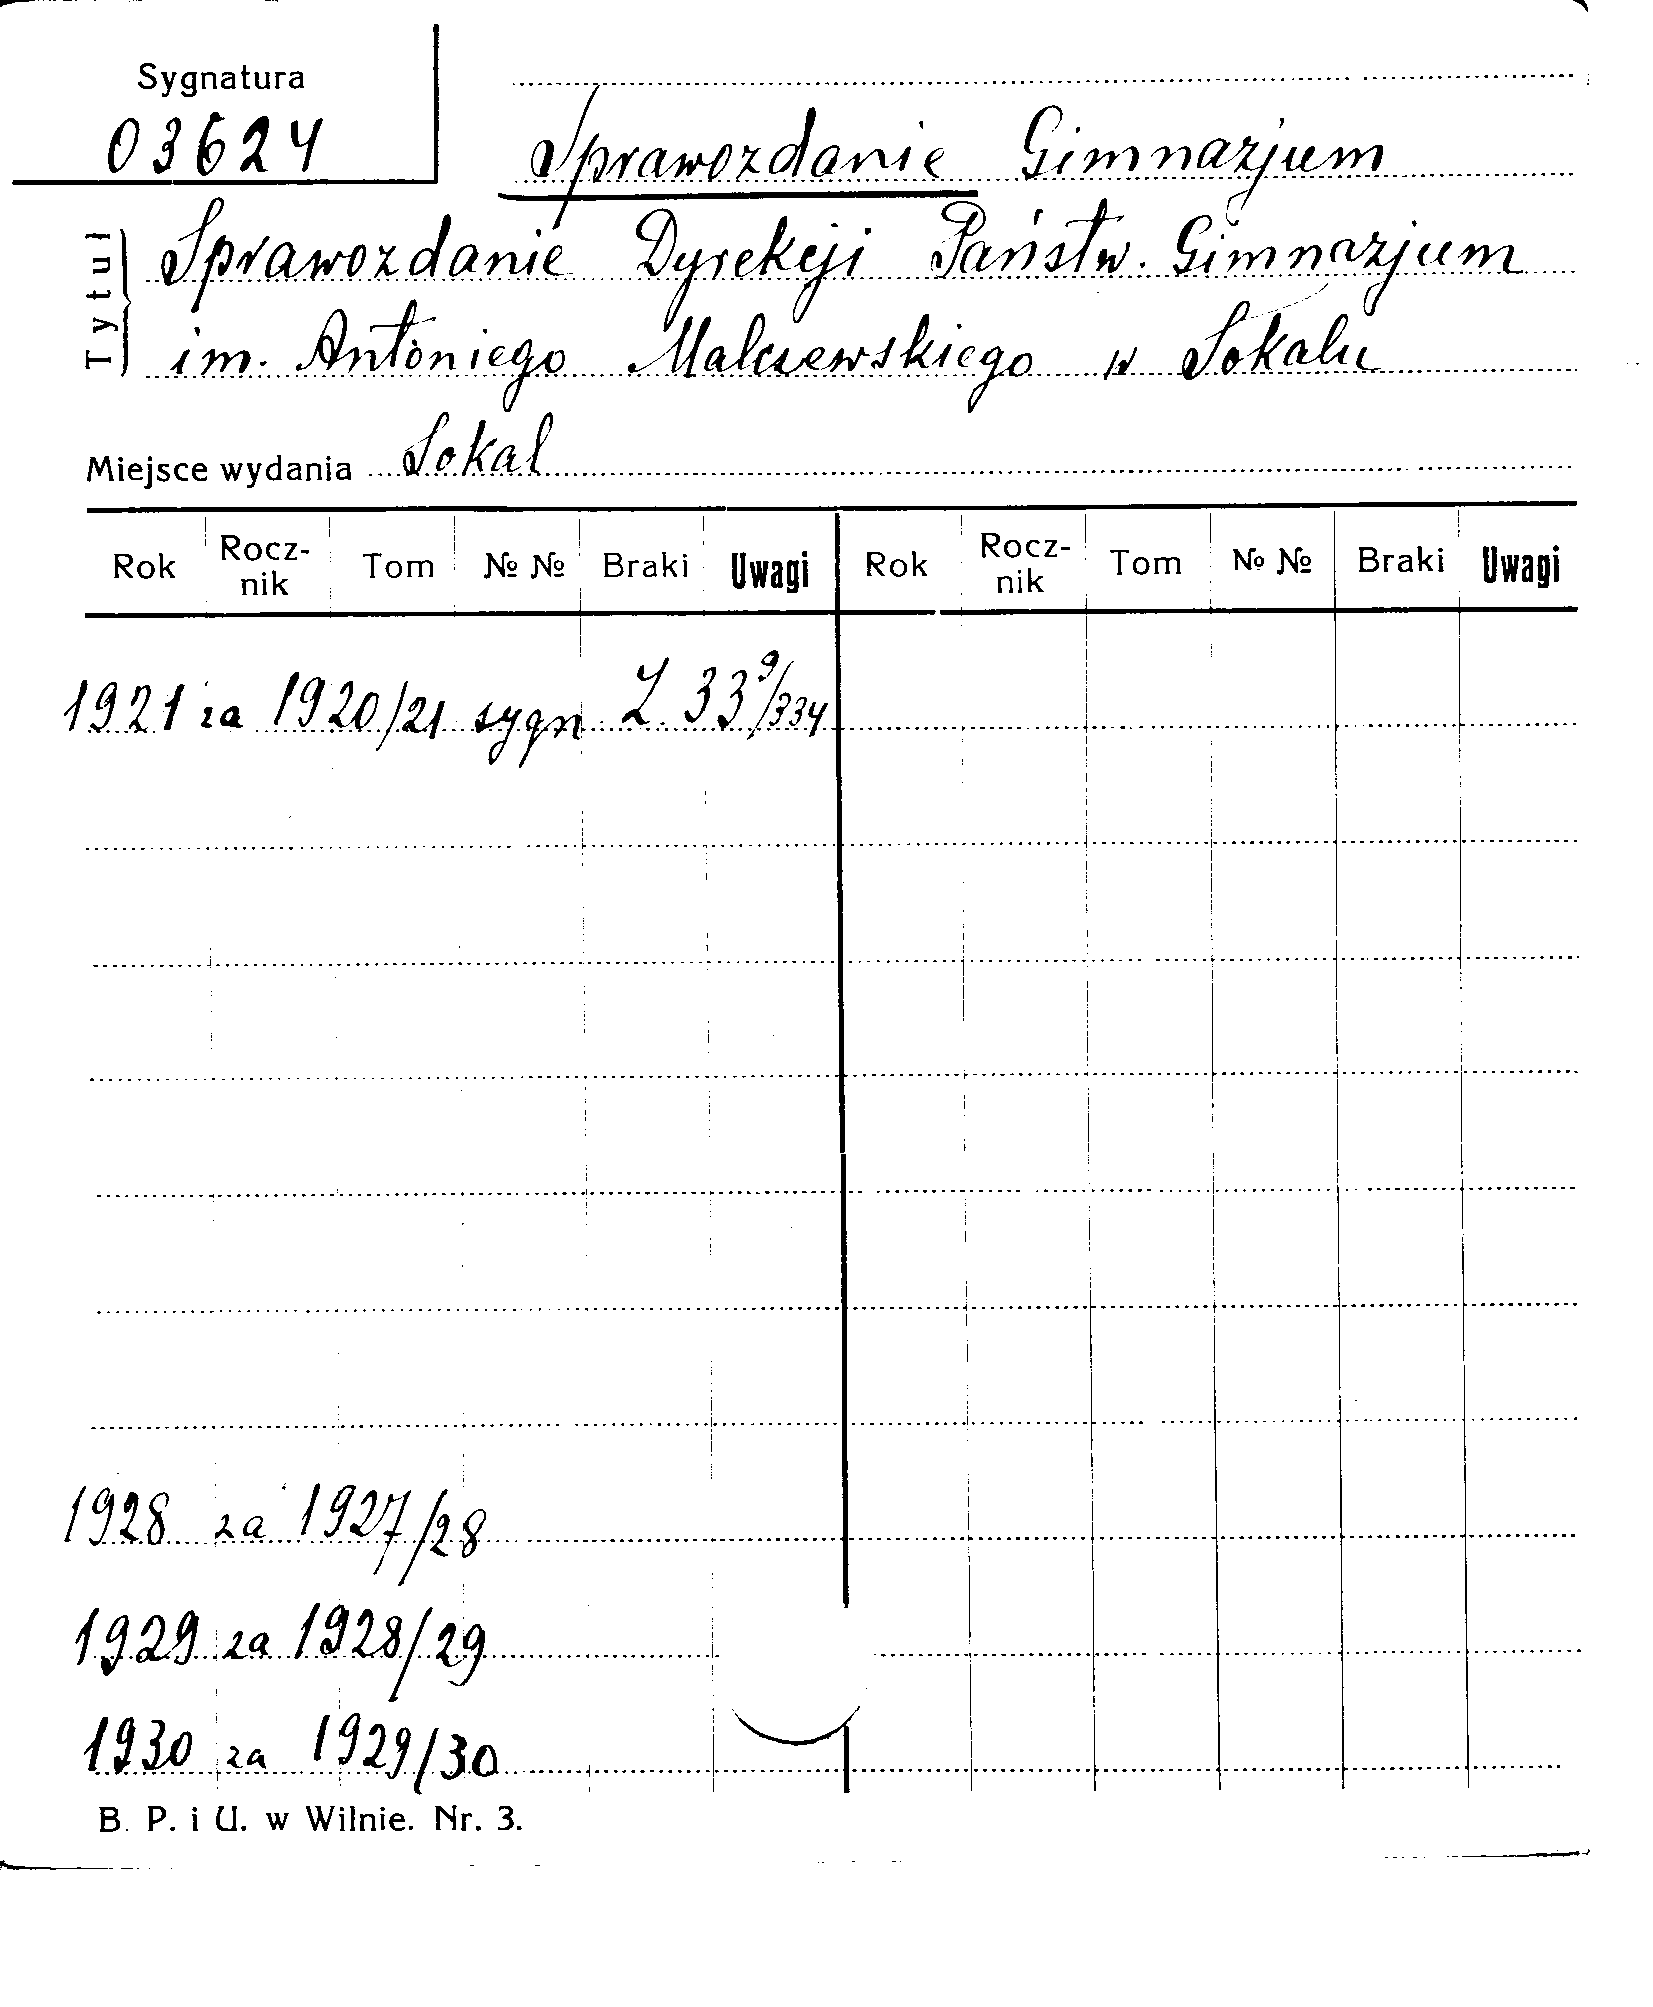 Sygnatura
03624
Sprawozdanie Gimnazjum
Tytuł
Sprawozdanie Dyrekcji Państw. Gimnazjum
im. Antoniego Malczewskiego w Sokalu
Miejsce wydania Sokal
Rok Rocz-nik Tom № № Braki Uwagi Rok Rocz-nik Tom № № Braki Uwagi
1921 za 1920/21 sygn Z. 33 9/334
1928 za 1927/28
1929 za 1928/29
1930 za 1929/30
B. P. i U. w Wilnie. Nr. 3.